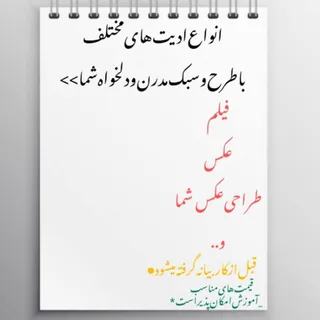 انواع ادیت های مختلف
با طرح و سبک مدرن و دلخواه شما>>
فیلم
عکس
طراحی عکس شما
و..
قبل از کار بیانه گرفته میشود●
قیمت های مناسب
_آموزش امکان پذیر است*